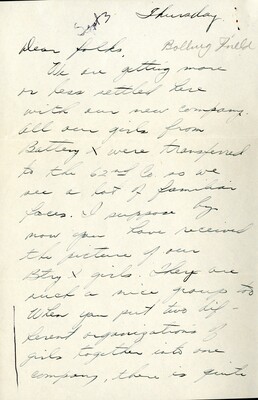 Thursday
Dear folks, Bolling Field
We are getting more
or less settled here
with our new company.
All our girls from
Battery X were transferred
to the 62nd Co. so we
see a lot of familiar
faces. I suppose by
now you have received
the picture of our
Btry X girls. They are
such a nice group too
When you put two dif-
ferent organizations of
girls together into one
company, there is quite